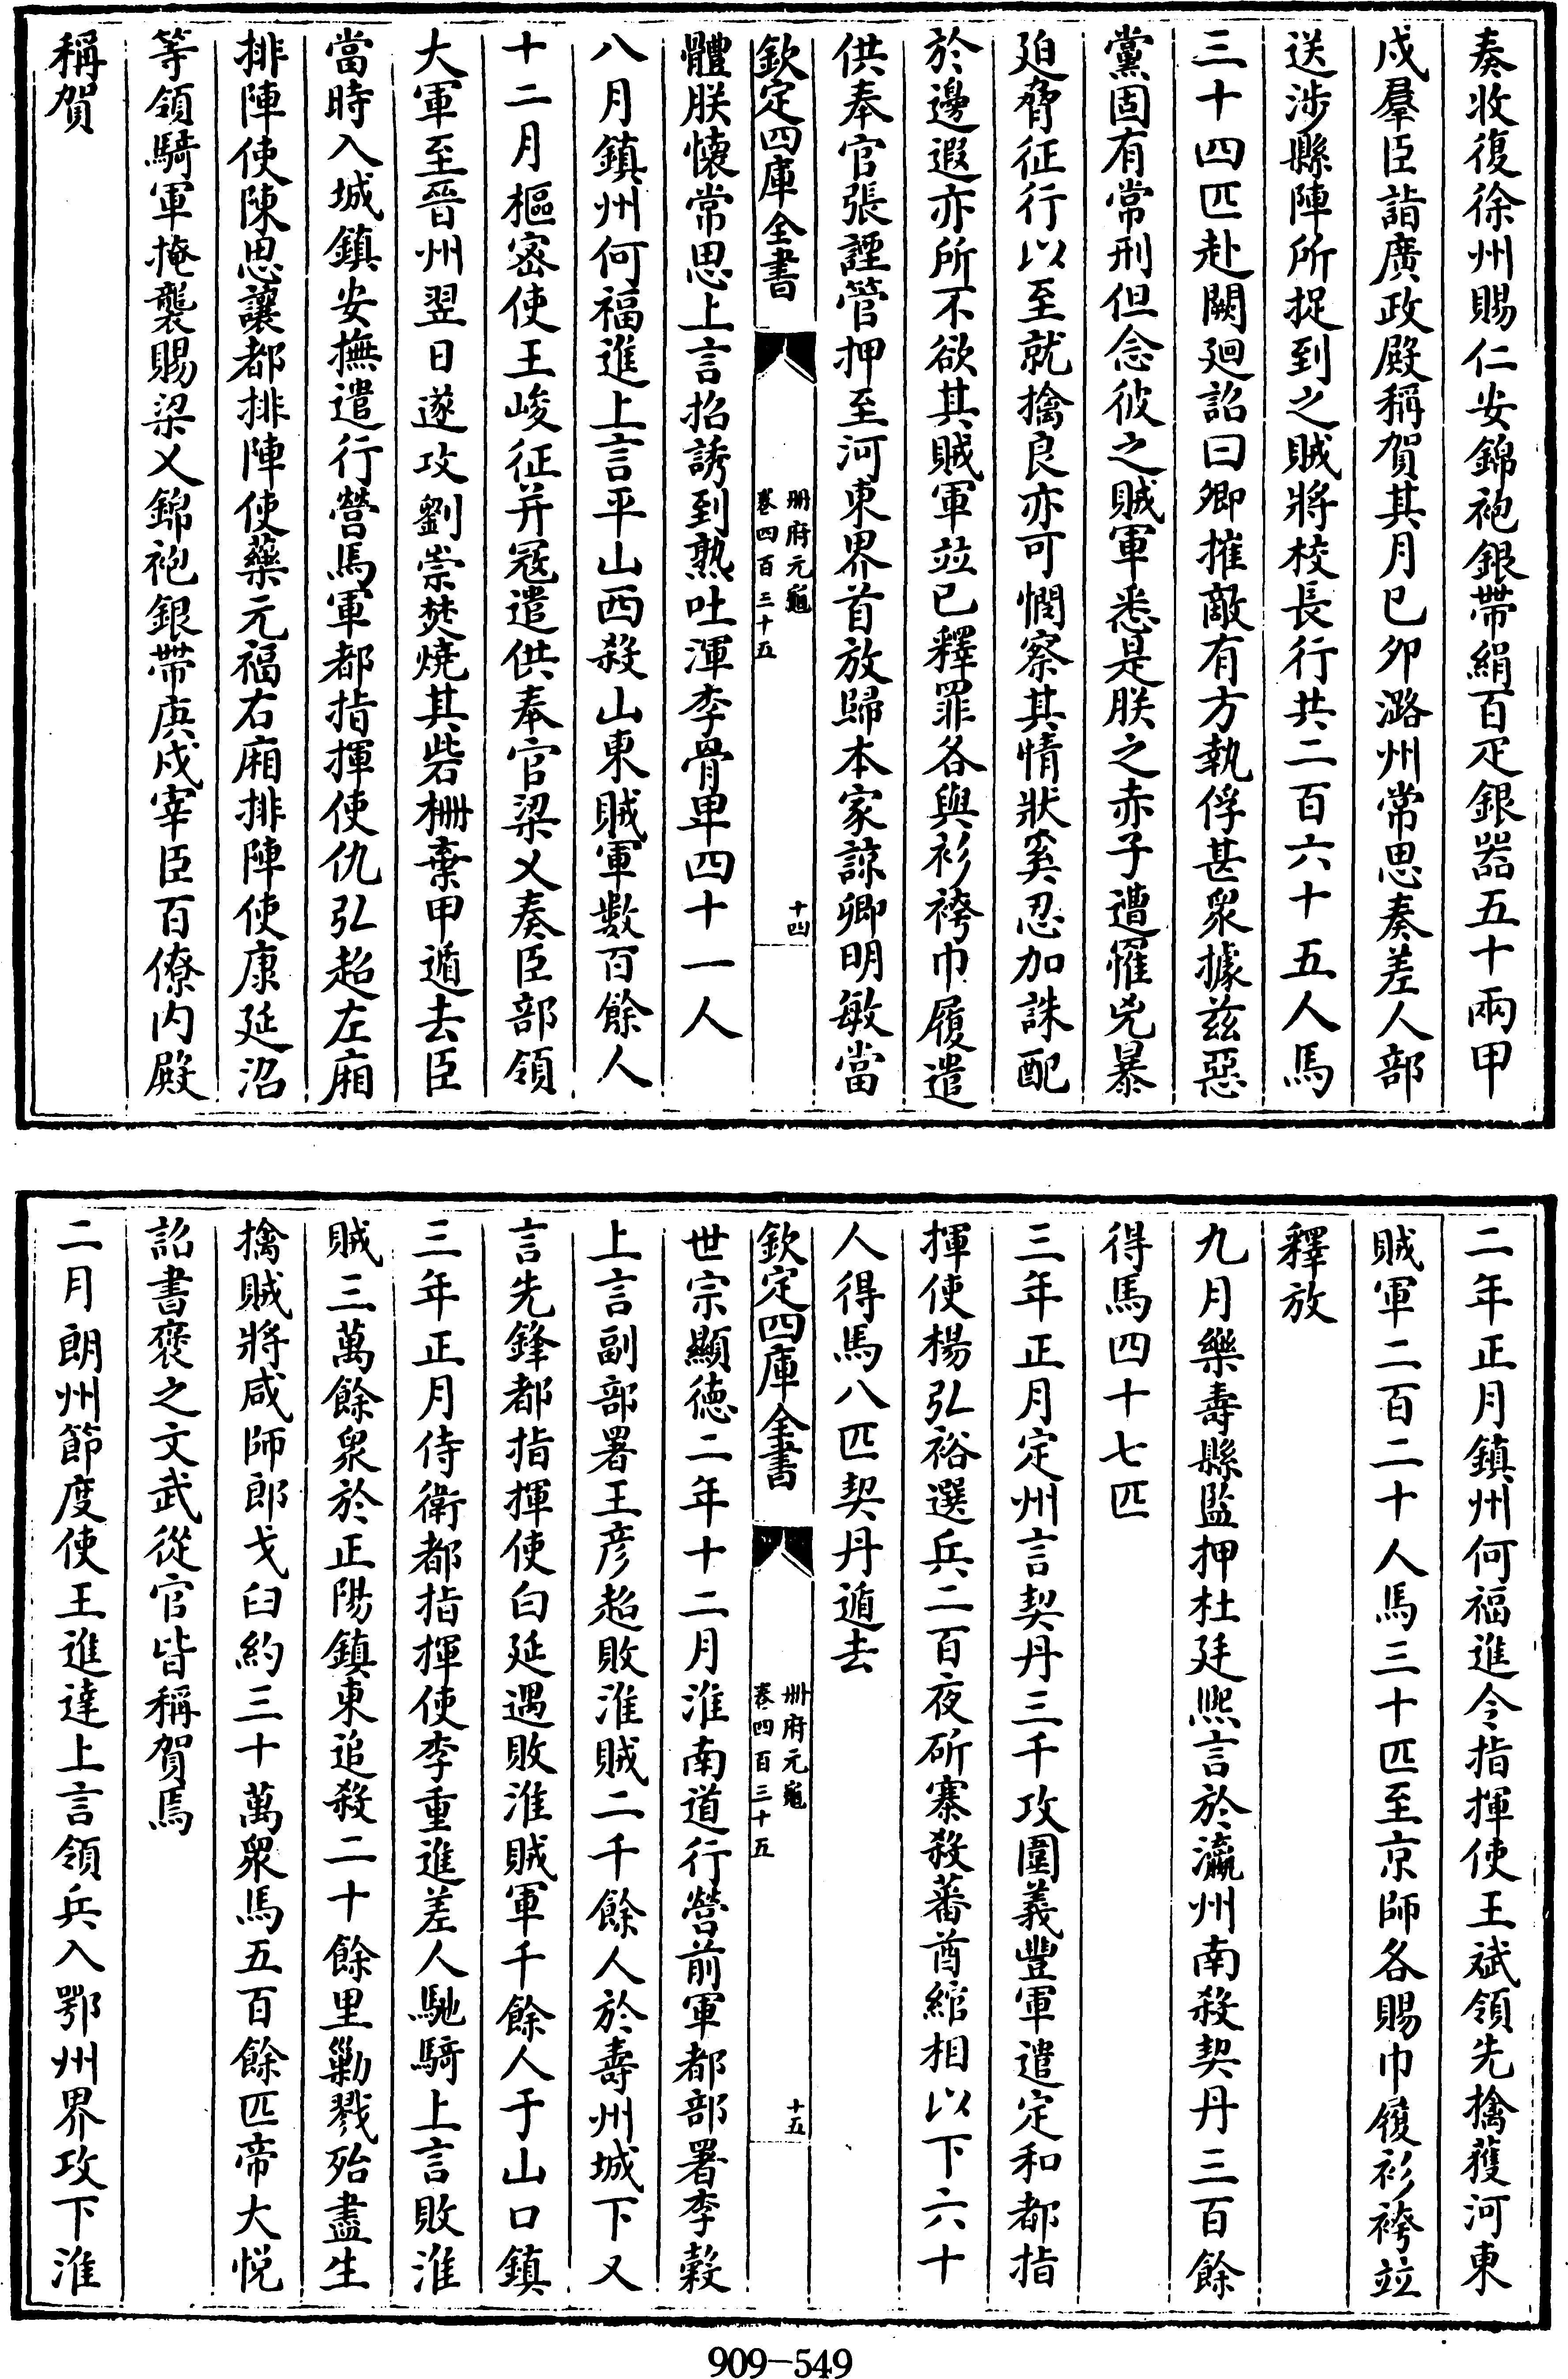 奏收復徐州賜仁安錦袍銀帶絹百疋銀器五十兩甲
戍羣臣詣廣政殿稱賀其月己卯潞州常思奏差人部
送涉縣陣所捉到之賊將校長行共二百六十五人馬
三十四匹赴闕廻詔曰卿摧敵有方執俘甚衆據兹惡
黨固有常刑但念彼之賊軍悉是朕之赤子遭罹兇暴
廹脅征行以至就擒良亦可憫察其情狀奚忍加誅配
於邊遐亦所不欲其賊軍竝已釋罪各與衫袴巾履遣
供奉官張諲管押至河東界首放歸本家諒卿明敏當
欽定四庫全書
冊府元龜
卷四百三十五
十四
體朕懷常思上言招誘到熟吐渾李骨卑四十一人
八月鎮州何福進上言平山西殺山東賊軍數百餘人
十二月樞密使王峻征并冦遣供奉官梁乂奏臣部領
大軍至晉州翌日遂攻劉崇焚燒其砦栅棄甲遁去臣
當時入城鎮安撫遣行營馬軍都指揮使仇弘超左廂
排陣使陳思讓都排陣使藥元福右廂排陣使康延沼
等領騎軍掩襲賜梁乂錦袍銀帶庚戍宰臣百僚内殿
稱賀
二年正月鎮州何福進令指揮使王斌領先擒獲河東
賊軍二百二十人馬三十匹至京師各賜巾履衫袴竝
釋放
九月樂壽縣監押杜廷熈言於瀛州南殺契丹三百餘
得馬四十七匹
三年正月定州言契丹三千攻圍義豐軍遣定和都指
揮使楊弘裕選兵二百夜斫寨殺蕃酋綰相以下六十
人得馬八匹契丹遁去
欽定四庫全書
冊府元龜
卷四百三十五
十五
世宗顯德二年十二月淮南道行營前軍都部署李榖
上言副部署王彦超敗淮賊二千餘人於壽州城下又
言先鋒都指揮使白延遇敗淮賊軍千餘人于山口鎮
三年正月侍衛都指揮使李重進差人馳騎上言敗淮
賊三萬餘衆於正陽鎮東追殺二十餘里勦戮殆盡生
擒賊將咸師郎戈臼約三十萬衆馬五百餘匹帝大悅
詔書褒之文武從官皆稱賀焉
二月朗州節度使王進逵上言領兵入鄂州界攻下淮
909-549